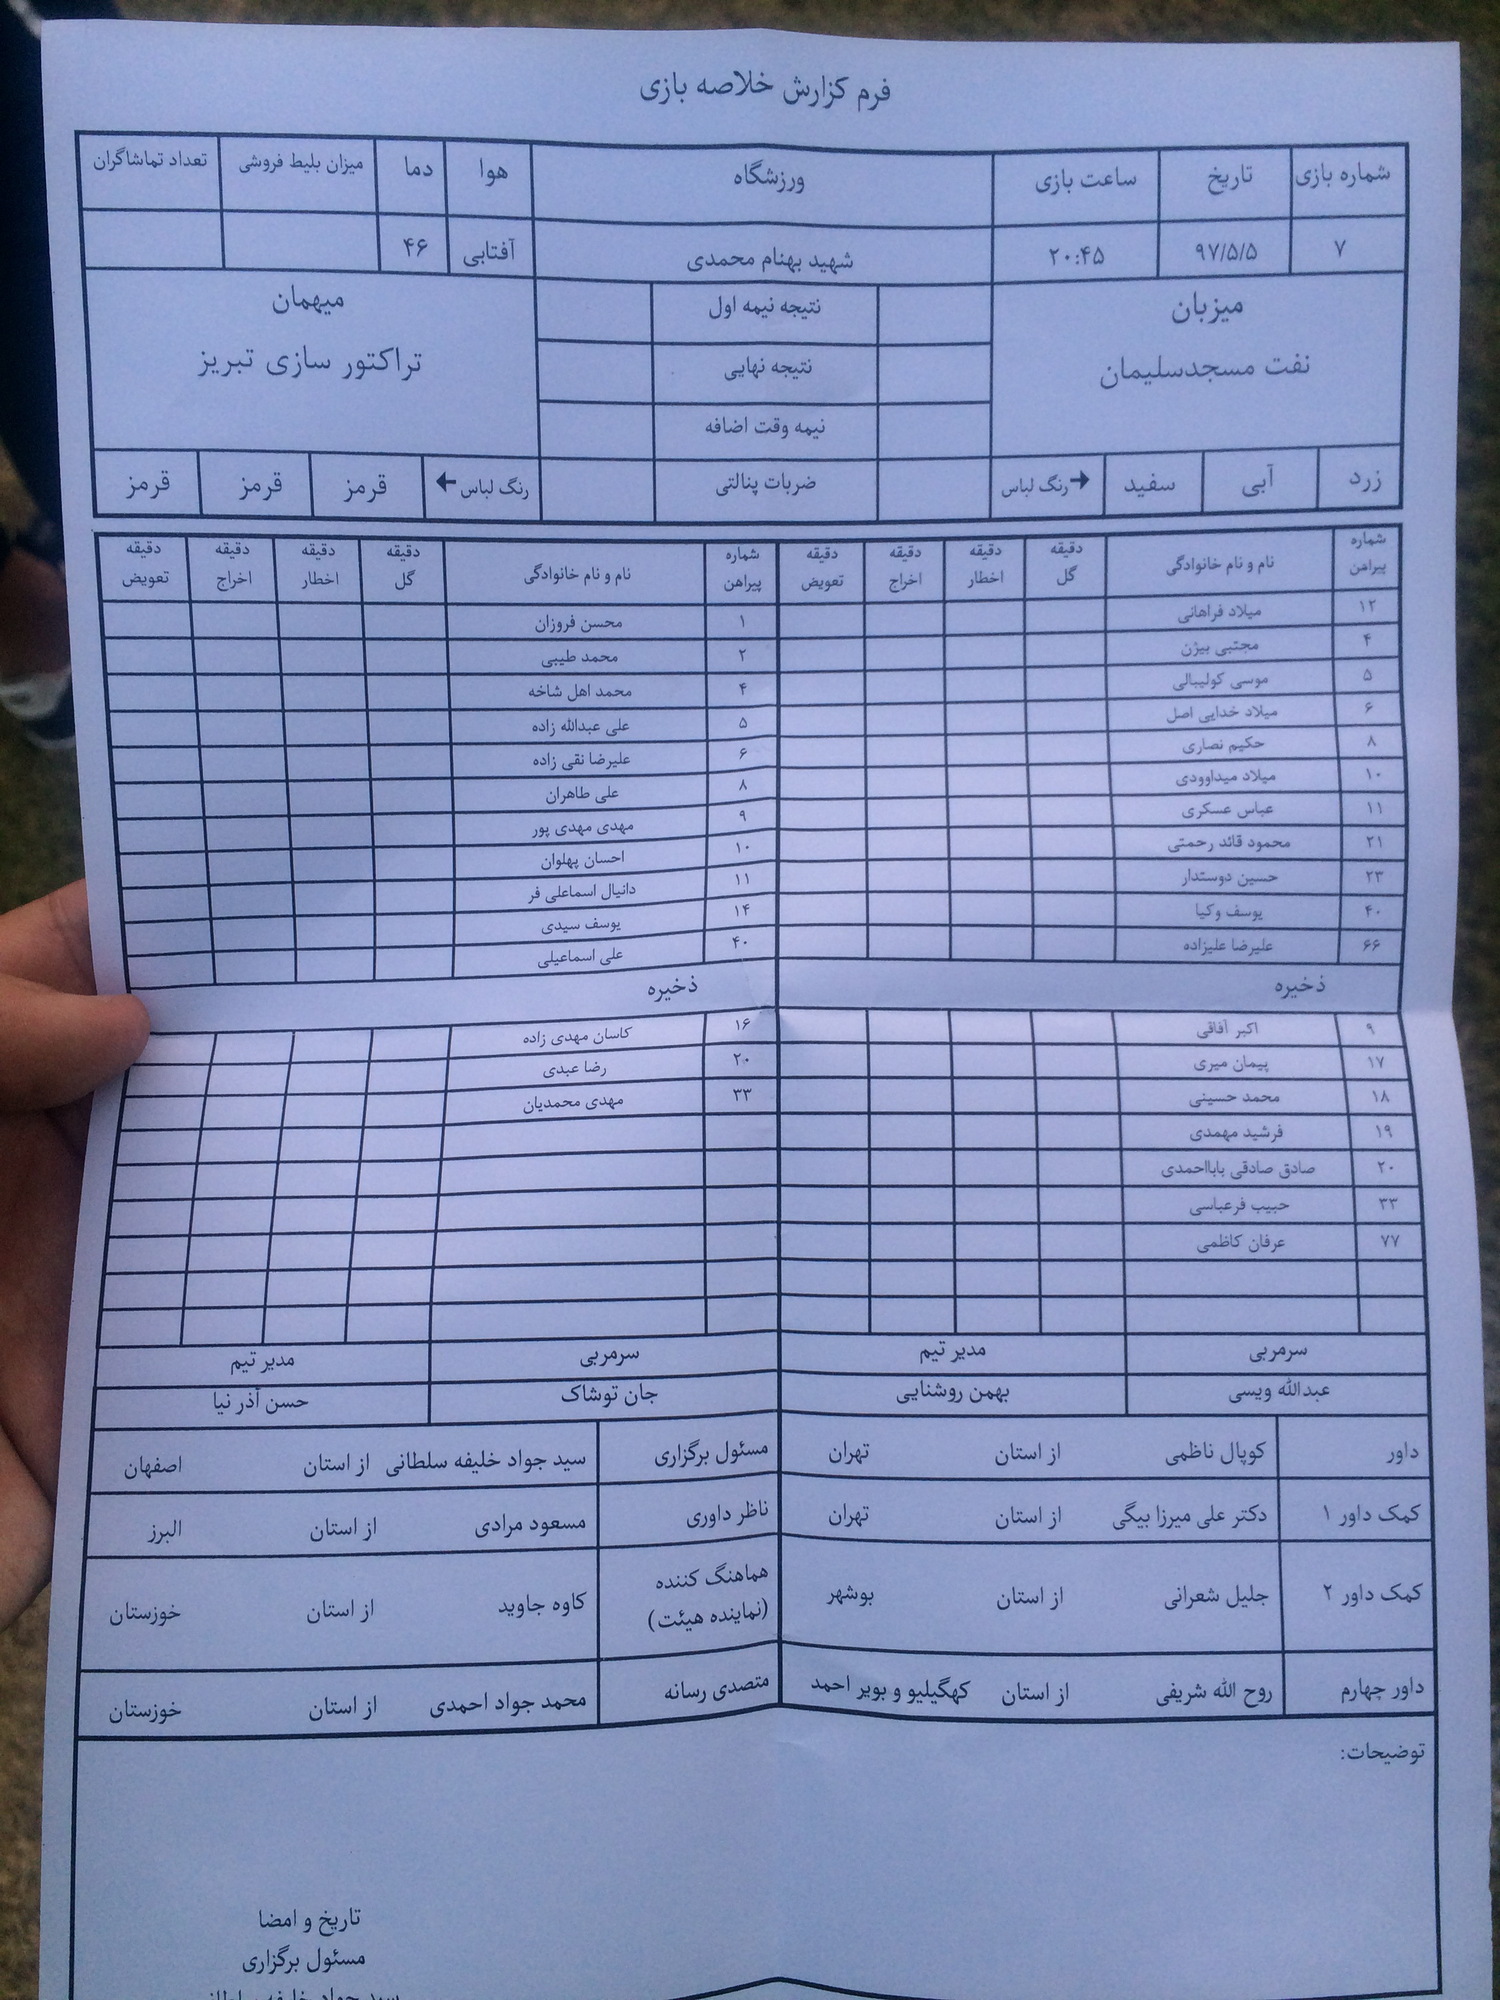 فرم گزارش خلاصه بازی
شماره بازی تاریخ ساعت بازی ورزشگاه هوا دما میزان بلیط فروشی تعداد تماشاگران
۷ ۹۷/۵/۵ ۲۰:۴۵ شهید بهنام محمدی آفتابی ۴۶
میزبان نتیجه نیمه اول میهمان
نفت مسجدسلیمان نتیجه نهایی تراکتور سازی تبریز
نیمه وقت اضافه
زرد آبی سفید رنگ لباس ضربات پنالتی رنگ لباس قرمز قرمز قرمز
شماره پیراهن نام و نام خانوادگی دقیقه گل دقیقه اخطار دقیقه اخراج دقیقه تعویض شماره پیراهن نام و نام خانوادگی دقیقه گل دقیقه اخطار دقیقه اخراج دقیقه تعویض
۱۲ میلاد فراهانی ۱ محسن فروزان
۴ مجتبی بیژن ۲ محمد طیبی
۵ موسی کولیبالی ۴ محمد اهل شاخه
۶ میلاد خدایی اصل ۵ علی عبدالله زاده
۸ حکیم نصاری ۶ علیرضا نقی زاده
۱۰ میلاد میداوودی ۸ علی طاهران
۱۱ عباس عسکری ۹ مهدی مهدی پور
۲۱ محمود قائد رحمتی ۱۰ احسان پهلوان
۲۳ حسین دوستدار ۱۱ دانیال اسماعلی فر
۴۰ یوسف وکیا ۱۴ یوسف سیدی
۶۶ علیرضا علیزاده ۴۰ علی اسماعیلی
ذخیره ذخیره
۹ اکبر آفاقی ۱۶ کاسان مهدی زاده
۱۷ پیمان میری ۲۰ رضا عبدی
۱۸ محمد حسینی ۳۳ مهدی محمدیان
۱۹ فرشید مهمدی
۲۰ صادق صادقی بابااحمدی
۳۳ حبیب فرعباسی
۷۷ عرفان کاظمی
سرمربی مدیر تیم سرمربی مدیر تیم
عبدالله ویسی بهمن روشنایی جان توشاک حسن آذر نیا
داور کوپال ناظمی از استان تهران مسئول برگزاری سید جواد خلیفه سلطانی از استان اصفهان
کمک داور ۱ دکتر علی میرزا بیگی از استان تهران ناظر داوری مسعود مرادی از استان البرز
کمک داور ۲ جلیل شعرانی از استان بوشهر هماهنگ کننده (نماینده هیئت) کاوه جاوید از استان خوزستان
داور چهارم روح الله شریفی از استان کهگیلیو و بویر احمد متصدی رسانه محمد جواد احمدی از استان خوزستان
توضیحات:
تاریخ و امضا
مسئول برگزاری
سید جواد خلیفه سلطانی